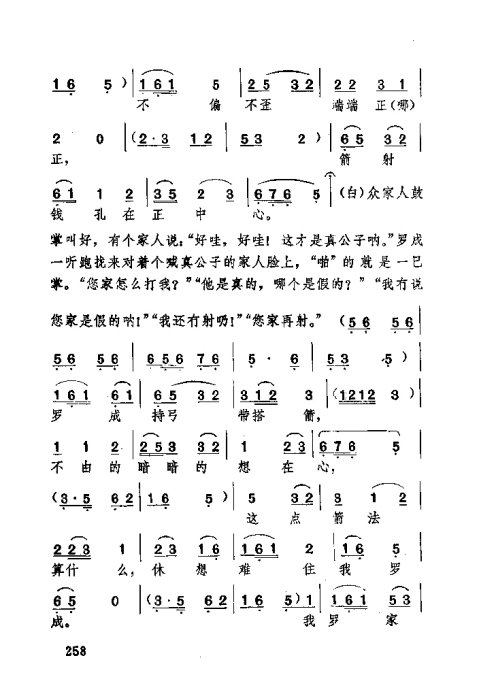 1 6 5 ) | 1 6 1 5 | 2 5 3 2 | 2 2 3 1 |
不 偏 不歪 端端 正(哪)
2 0 | ( 2 · 3 1 2 | 5 3 2 ) | 6 5 3 2 |
正, 箭 射
6 1 1 2 | 3 5 2 3 | 6 7 6 5 | (白)众家人鼓
钱 孔 在 正 中 心。
掌叫好,有个家人说:“好哇,好哇!这才是真公子呐。”罗成
一听跑找来对着个喊真公子的家人脸上,“啪”的就是一巴
掌。“您家怎么打我?”“他是真的,哪个是假的?”“我冇说
您家是假的呐!”“我还冇射哟!”“您家再射。” ( 5 6 5 6 |
5 6 5 6 | 6 5 6 7 6 | 5 · 6 | 5 3 5 ) |
1 6 1 6 1 | 6 5 3 2 | 3 1 2 3 | ( 1 2 1 2 3 ) |
罗 成 持弓 带搭 箭,
1 1 2 | 2 5 3 3 2 | 1 2 3 | 6 7 6 5 |
不 由 的 暗暗 的 想 在 心,
( 3 · 5 6 2 | 1 6 5 ) | 5 3 2 | 3 1 2 |
这 点 箭 法
2 2 3 1 | 2 3 1 6 | 1 6 1 2 | 1 6 5 |
算什 么, 休 想 难 住 我 罗
6 5 0 | ( 3 · 5 6 2 | 1 6 5 ) 1 | 1 6 1 5 3 |
成。 我 罗 家
258